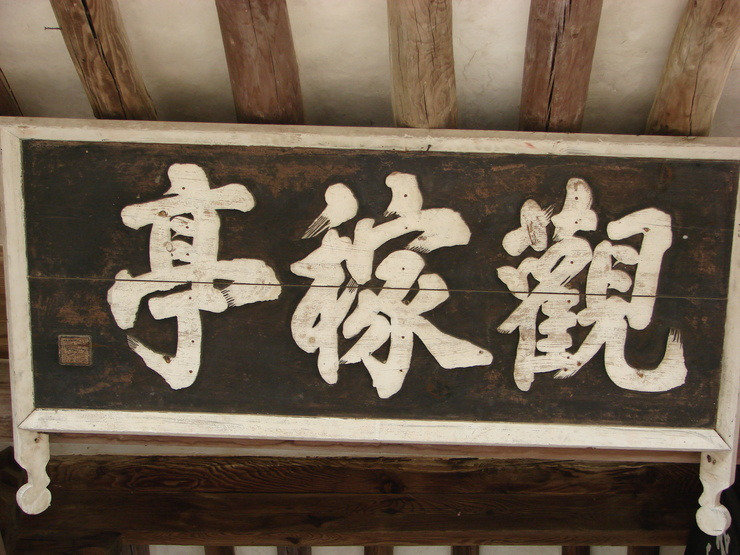 觀稼亭